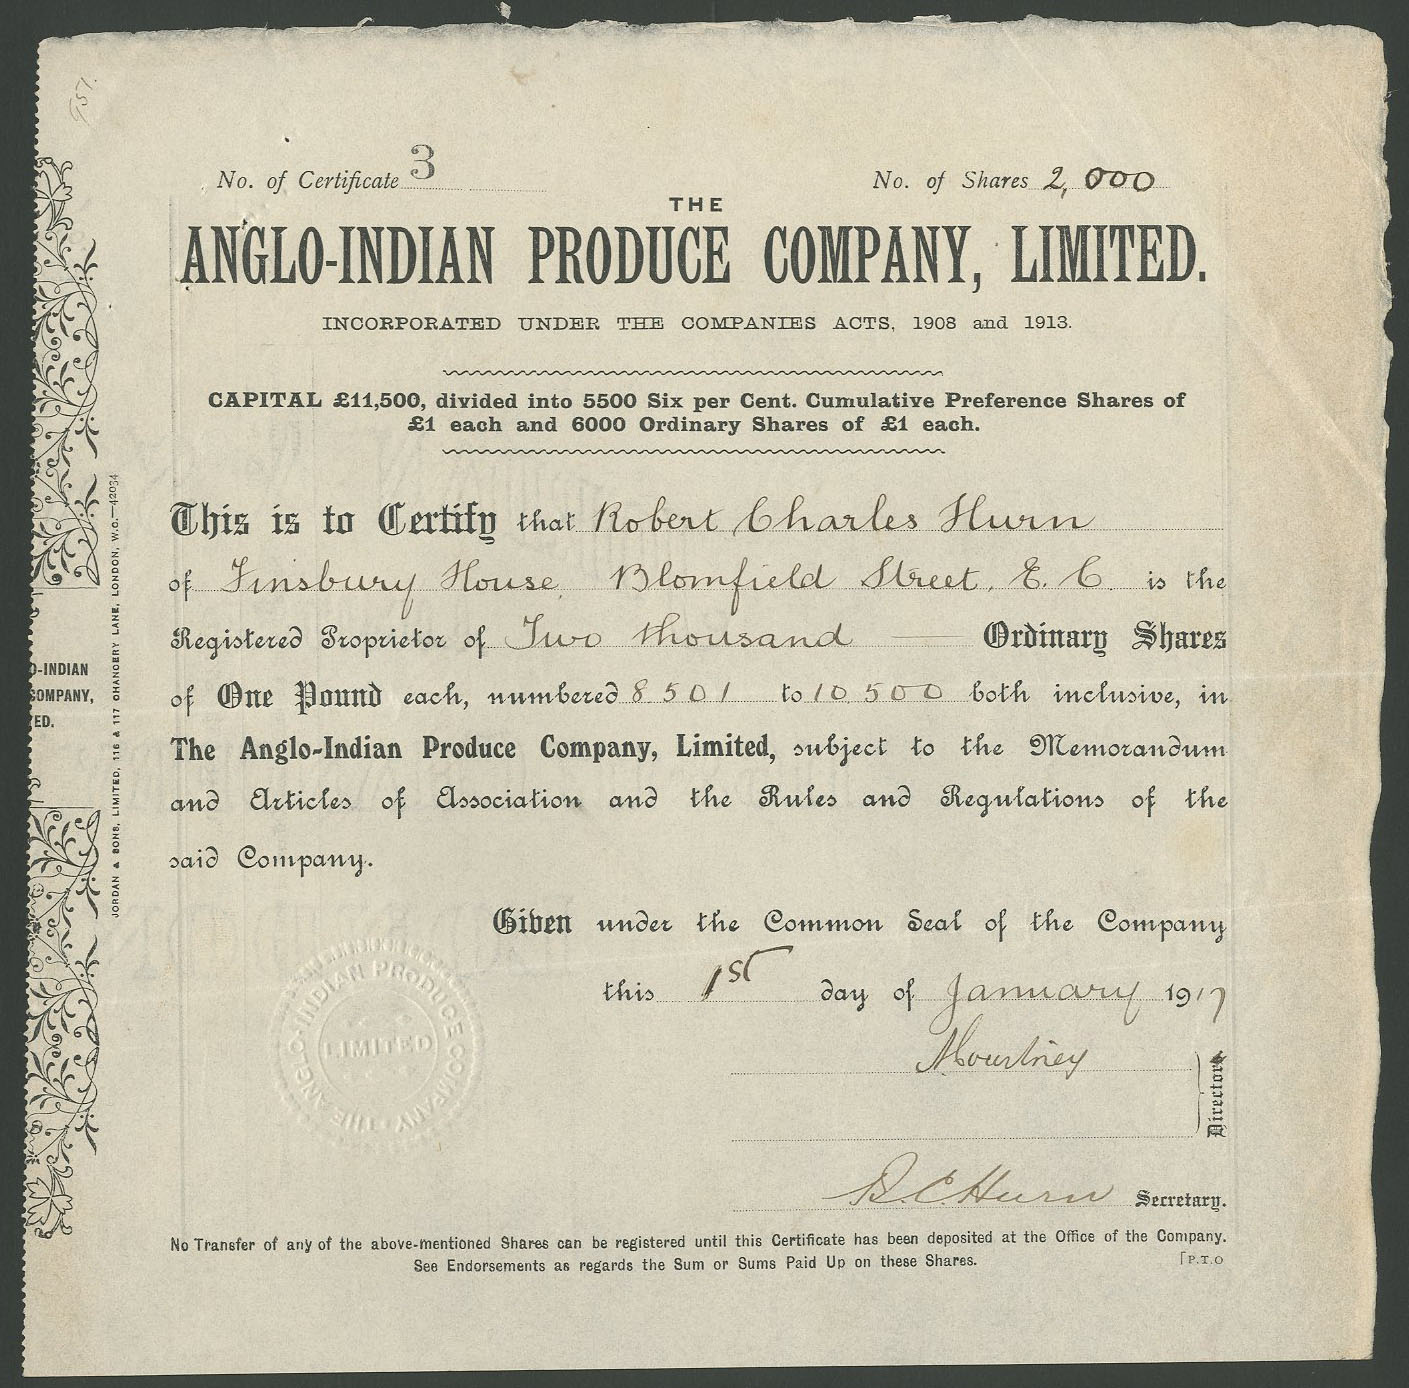 No. of Certificate 3
No. of Shares 2,000
THE
ANGLO-INDIAN PRODUCE COMPANY, LIMITED.
INCORPORATED UNDER THE COMPANIES ACTS, 1908 and 1913.
CAPITAL £11,500, divided into 5500 Six per Cent. Cumulative Preference Shares of
£1 each and 6000 Ordinary Shares of £1 each.
This is to Certify that Robert Charles Hurn
of Finsbury House, Blomfield Street, E. C. is the
Registered Proprietor of Two thousand Ordinary Shares
of One Pound each, numbered 8501 to 10,500 both inclusive, in
The Anglo-Indian Produce Company, Limited, subject to the Memorandum
and Articles of Association and the Rules and Regulations of the
said Company.
Given under the Common Seal of the Company
this 1st day of January 1917
Directors
Secretary.
No Transfer of any of the above-mentioned Shares can be registered until this Certificate has been deposited at the Office of the Company.
See Endorsements as regards the Sum or Sums Paid Up on these Shares.
[P.T.O
O-INDIAN
COMPANY,
ED.
JORDAN & SONS, LIMITED, 116 & 117 CHANCERY LANE, LONDON, W.C.—42034
THE ANGLO-INDIAN PRODUCE COMPANY
LIMITED